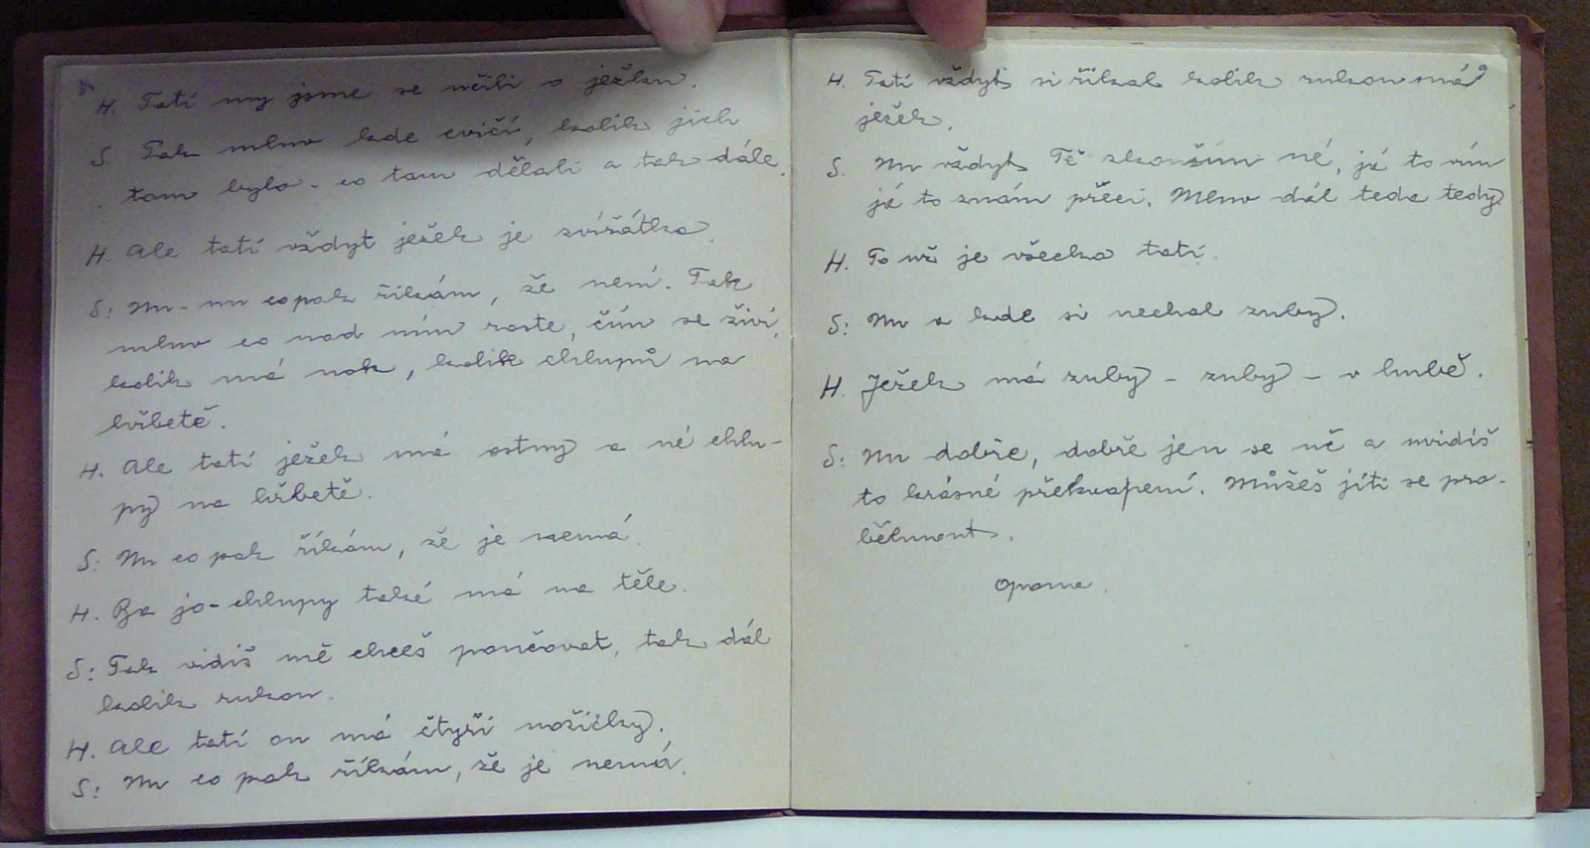 H. Tatí my jsme se učili o ježku.
S Tak mluv kde cvičí, kolik jich
tam bylo - co tam dělali a tak dále.
H. Ale tatí vždyt ježek je zvířátko.
S: Nu - nu copak říkám, že není. Tak
mluv co nad ním roste, čím se živí,
kolik má noh, kolik chlupů na
hřbetě.
H. Ale tatí ježek má ostny a né chlu-
py na hřbetě.
S: Nu co pak říkám, že je nemá.
H. Ba jo - chlupy také má na těle.
S: Tak vidíš mě chceš poučovat, tak dál
kolik rukou.
H. Ale tatí on má čtyři nožičky.
S: Nu co pak říkám, že je nemá.
H. Tatí vždyt si říkal kolik rukou má
ježek.
S. Nu vždyt Tě zkouším né, já to vím
já to znám přeci. Mluv dál teda tedy
H. To už je všecko tatí.
S: Nu a kde si nechal zuby.
H. Ježek má zuby - zuby - v hubě.
S: Nu dobře, dobře jen se uč a uvidíš
to krásné překvapení. Můžeš jíti se pro-
běhnout.
Opona.